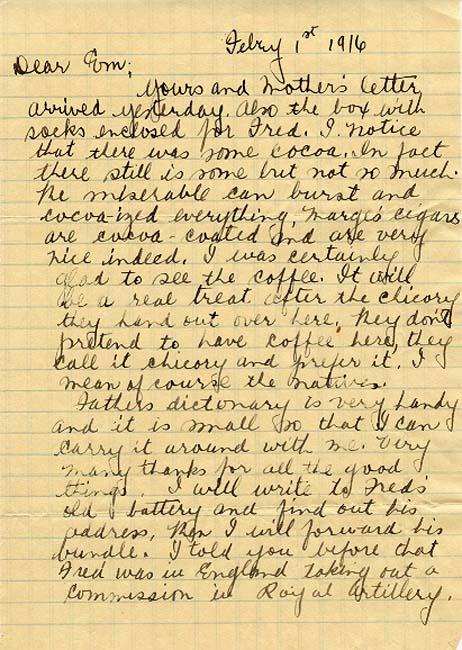 Febry 1st 1916
Dear Tom;
Yours and Mother's letter
arrived yesterday. Also the box with
socks enclosed for Fred. I notice
that there was some cocoa. In fact
there still is some but not so much.
The miserable can burst and
cocoa-ized everything, Marge's cigars
are cocoa-coated and are very
nice indeed. I was certainly
glad to see the coffee. It will
be a real treat after the chicory
they hand out over here. They don't
pretend to have coffee here, they
call it chicory and prefer it. I
mean of course the natives.
Fathers dictionary is very handy
and it is small so that I can
carry it around with me. Very
many thanks for all the good
things. I will write to Fred's
old battery and find out his
address, then I will forward his
bundle. I told you before that
Fred was in England taking out a
commission in Royal Artillery.